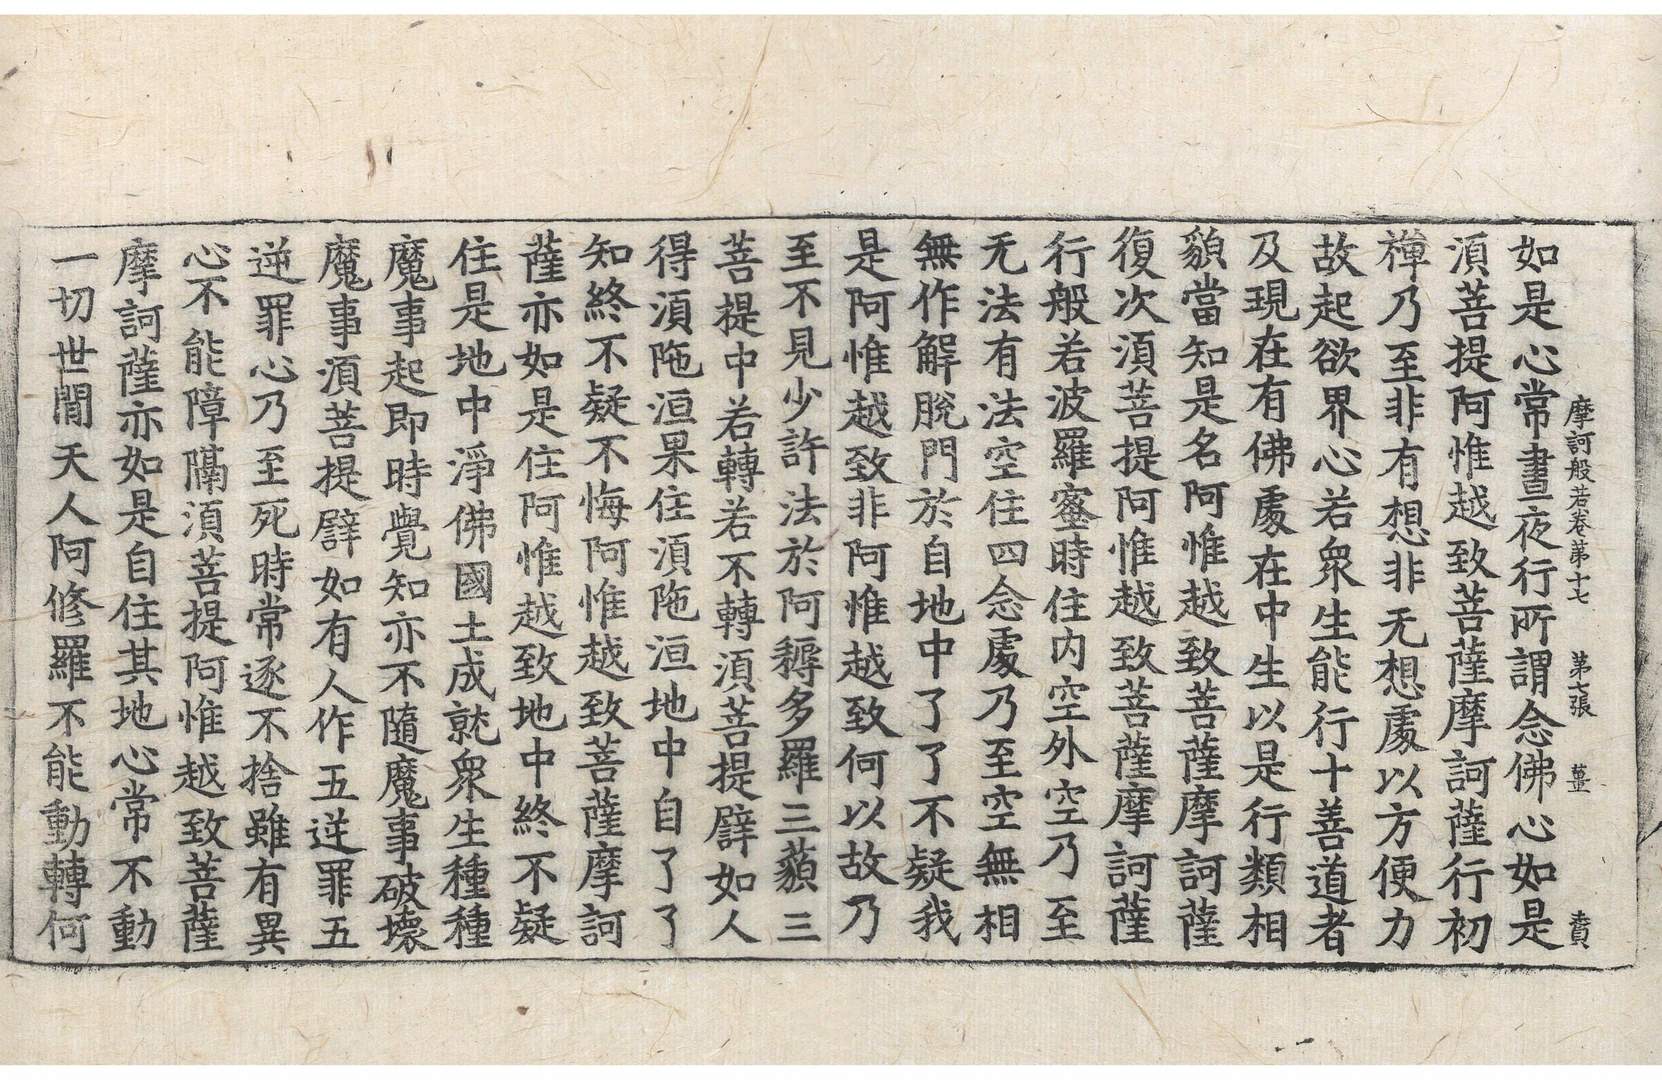 摩訶般若卷第十七 第七張 薑
如是心常晝夜行所謂念佛心如是
湏菩提阿惟越致菩薩摩訶薩行初
禪乃至非有想非无想處以方便力
故起欲界心若衆生能行十善道者
及現在有佛處在中生以是行類相
貌當知是名阿惟越致菩薩摩訶薩
復次湏菩提阿惟越致菩薩摩訶薩
行般若波羅蜜時住内空外空乃至
无法有法空住四念處乃至空無相
無作解脫門於自地中了了不疑我
是阿惟越致非阿惟越致何以故乃
至不見少許法於阿耨多羅三藐三
菩提中若轉若不轉湏菩提譬如人
得湏陁洹果住湏陁洹地中自了了
知終不疑不悔阿惟越致菩薩摩訶
薩亦如是住阿惟越致地中終不疑
住是地中淨佛國土成就衆生種種
魔事起即時覺知亦不隨魔事破壞
魔事湏菩提譬如有人作五逆罪五
逆罪心乃至死時常逐不捨雖有異
心不能障隔湏菩提阿惟越致菩薩
摩訶薩亦如是自住其地心常不動
一切世間天人阿修羅不能動轉何